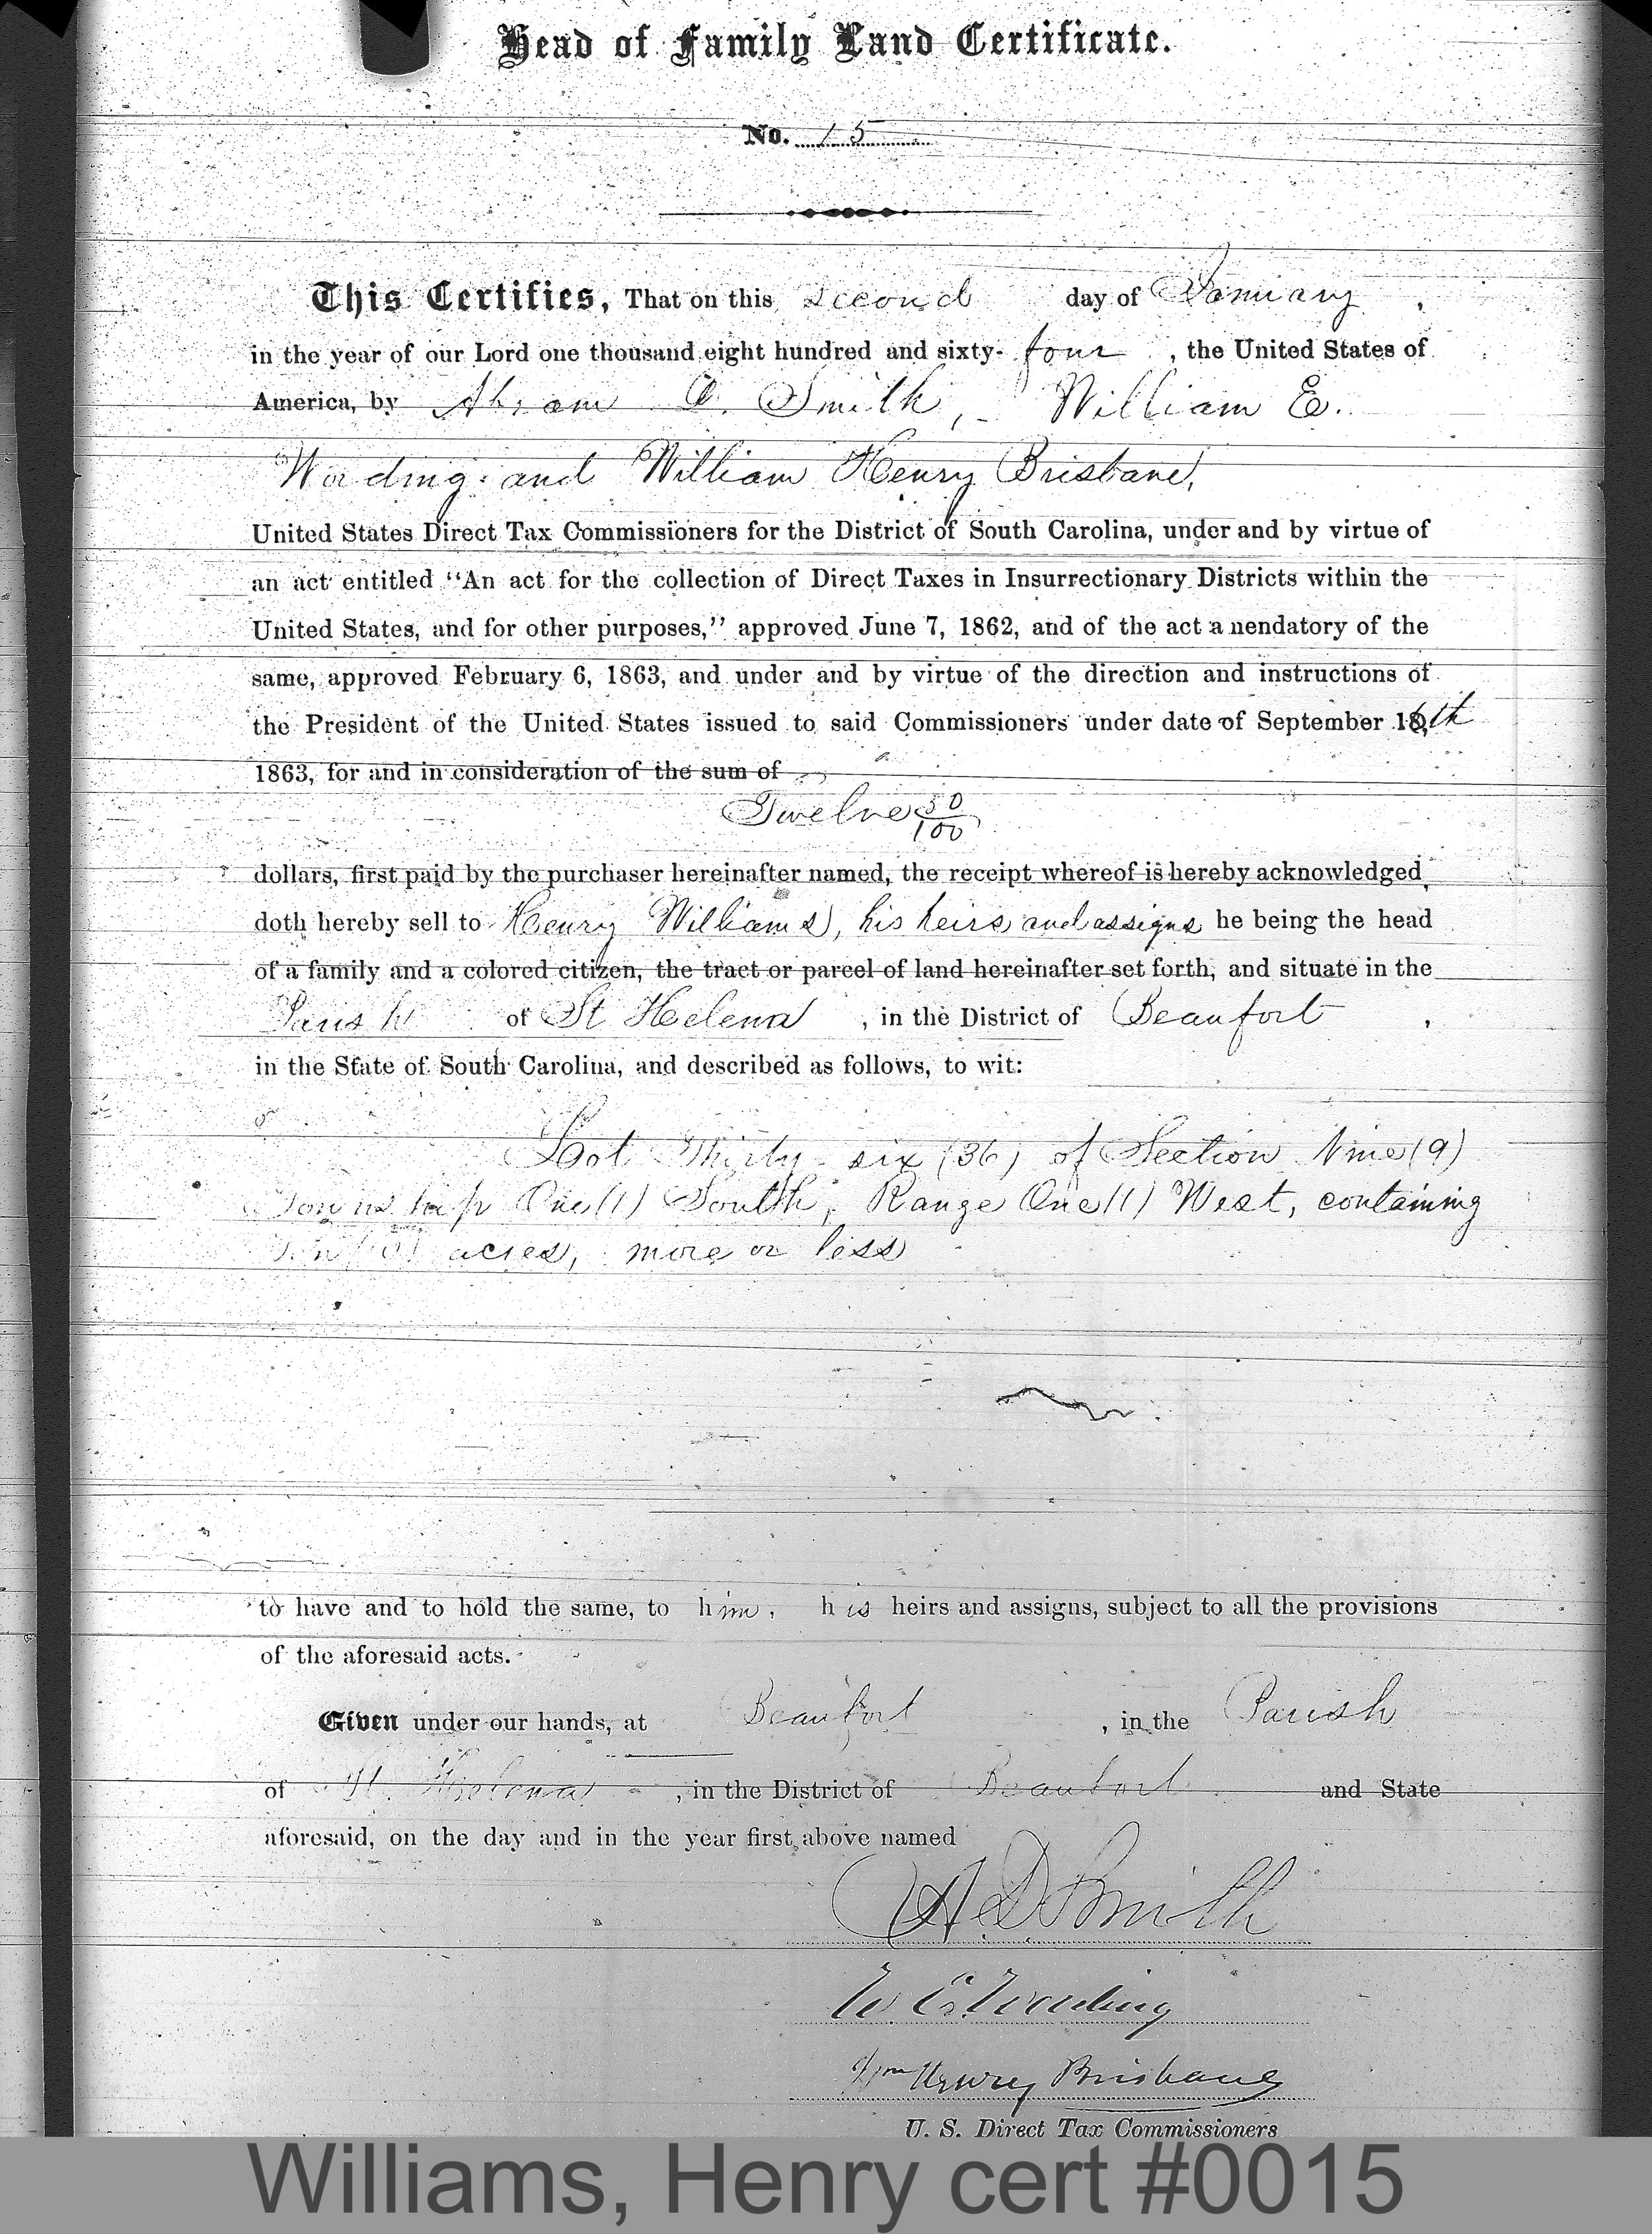 Head of Family Land Certificate.
No. 15
This Certifies, That on this second day of January,
in the year of our Lord one thousand eight hundred and sixty-four, the United States of
America, by Abram D. Smith, William E.
Wording and William Henry Brisbane,
United States Direct Tax Commissioners for the District of South Carolina, under and by virtue of
an act entitled "An act for the collection of Direct Taxes in Insurrectionary Districts within the
United States, and for other purposes," approved June 7, 1862, and of the act amendatory of the
same, approved February 6, 1863, and under and by virtue of the direction and instructions of
the President of the United States issued to said Commissioners under date of September 16th
1863, for and in consideration of the sum of
Twelve 50/100
dollars, first paid by the purchaser hereinafter named, the receipt whereof is hereby acknowledged,
doth hereby sell to Henry Williams, his heirs and assigns he being the head
of a family and a colored citizen, the tract or parcel of land hereinafter set forth, and situate in the
Parish of St Helena, in the District of Beaufort,
in the State of South Carolina, and described as follows, to wit:
Lot Thirty six (36) of Section Nine (9)
Township One (1) South, Range One (1) West, containing
Ten (10) acres, more or less
to have and to hold the same, to him, his heirs and assigns, subject to all the provisions
of the aforesaid acts.
Given under our hands, at Beaufort, in the Parish
of St. Helena, in the District of Beaufort and State
aforesaid, on the day and in the year first above named
A D Smith
W. E. Wording
Wm Henry Brisbane
U. S. Direct Tax Commissioners
Williams, Henry cert #0015